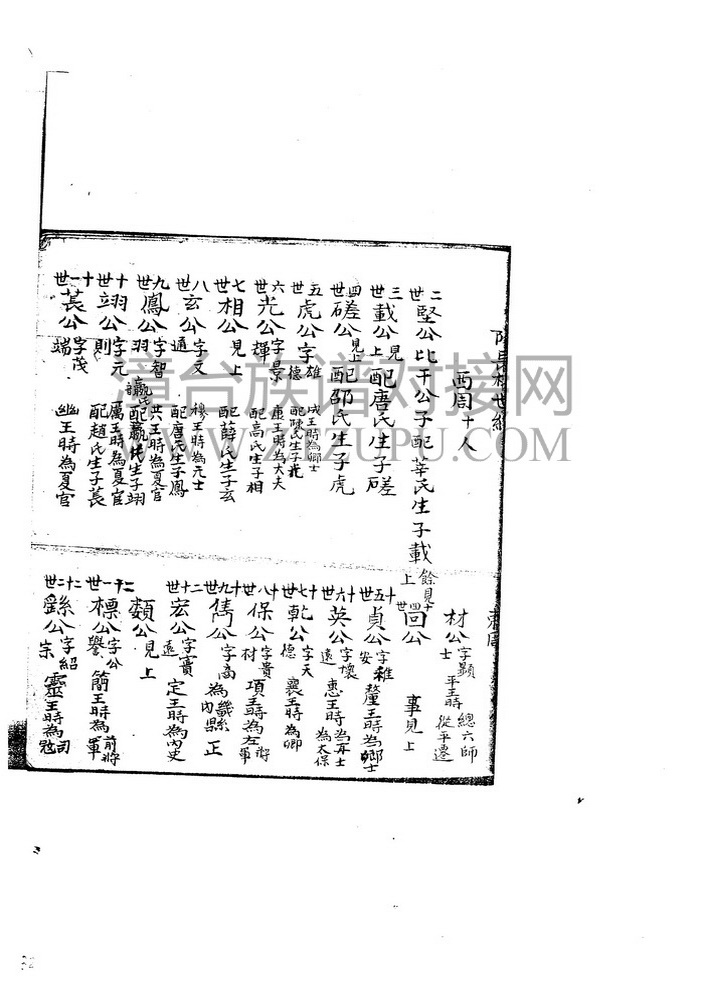 西周十人
二世 堅公 比干公子配莘氏生子載 餘見上
三世 載公 見上 配唐氏生子磋
四世 磋公 見上 配邵氏生子虎
五世 虎公 字雄德 成王時為鄉士 配陳氏生子光
六世 光公 字景輝 康王時為大夫 配高氏生子相
七世 相公 見上 配薛氏生子玄
八世 玄公 字文通 穆王時為元士 配唐氏生子鳳
九世 鳳公 字智羽 共王時為夏官 配嬴氏生子翊
十世 翊公 字元則 厲王時為夏官 配趙氏生子萇
十一世 萇公 字茂端 幽王時為夏官
材公 字顯士 平王時 總六師 從平遷
十四世 回公 事見上
十五世 貞公 字稚安 釐王時為鄉士
十六世 英公 字懷遠 惠王時為太保
十七世 乾公 字天德 襄王時為卿
十八世 保公 字貴材 項王時為左將軍
十九世 雋公 字高 為畿內縣正
二十世 宏公 字實遠 定王時為內史
類公 見上
二十一世 標公 字公譽 簡王時為前將軍
二十二世 繇公 字紹宗 靈王時為司寇
漳台族谱对接网
WWW.ZTZUPU.COM
32